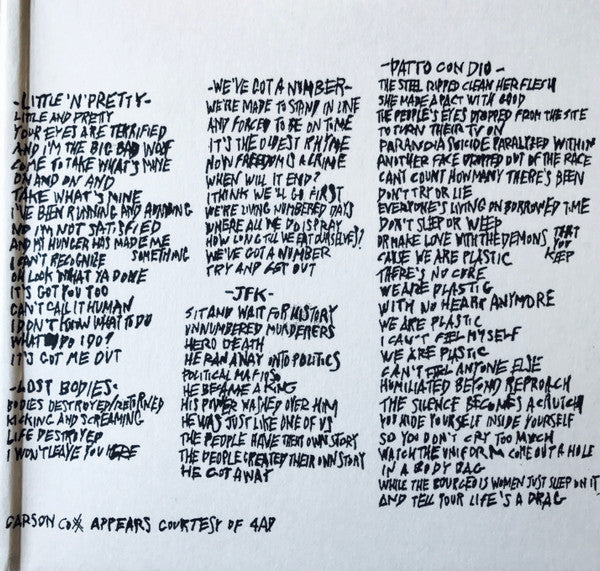 -LITTLE 'N' PRETTY-
LITTLE AND PRETTY
YOUR EYES ARE TERRIFIED
AND I'M THE BIG BAD WOLF
COME TO TAKE WHAT'S MINE
ON AND ON AND
TAKE WHAT'S MINE
I'VE BEEN RUNNING AND
NO I'M NOT SATISFIED
AND MY HUNGER HAS MADE ME
SOMETHING
I CAN'T RECOGNIZE
OH LOOK WHAT YA DONE
IT'S GOT YOU TOO
CAN'T CALL IT HUMAN
I DON'T KNOW WHAT TO DO
WHAT DO I DO?
IT'S GOT ME OUT
-LOST BODIES-
BODIES DESTROYED/RETURNED
KICKING AND SCREAMING
LIFE DESTROYED
I WON'T LEAVE YOU HERE
-WE'VE GOT A NUMBER-
WE'RE MADE TO STAND IN LINE
AND FORCED TO BE ON TIME
IT'S THE OLDEST RHYME
NOW FREEDOM IS A CRIME
WHEN WILL IT END?
I THINK WE'LL GO FIRST
WE'RE LIVING NUMBERED DAYS
WHERE ALL WE DO IS PRAY
HOW LONG TILL WE EAT OURSELVES?!
WE'VE GOT A NUMBER
TRY AND GET OUT
-JFK-
SIT AND WAIT FOR HISTORY
UNNUMBERED MURDERERS
HERO DEATH
HE RAN AWAY INTO POLITICS
POLITICAL MAFIOS
HE BECAME A KING
HIS POWER WASHED OVER HIM
HE WAS JUST LIKE ONE OF US
THE PEOPLE HAVE THEIR OWN STORY
THE PEOPLE CREATED THEIR OWN STORY
HE GOT AWAY
-PATTO CON DIO-
THE STEEL RIPPED CLEAN HER FLESH
SHE MADE A PACT WITH GOD
THE PEOPLE'S EYES DROPPED FROM THE SITE
TO TURN THEIR TV ON
PARANOIA SUICIDE PARALYZED WITHIN
ANOTHER FACE DROPPED OUT OF THE RACE
CAN'T COUNT HOW MANY THERE'S BEEN
DON'T TRY OR LIE
EVERYONE'S LIVING ON BORROWED TIME
DON'T SLEEP OR WEEP
OR MAKE LOVE WITH THE DEMONS THAT YOU KEEP
CAUSE WE ARE PLASTIC
THERE'S NO CURE
WE ARE PLASTIC
WITH NO HEART ANYMORE
WE ARE PLASTIC
I CAN'T FEEL MYSELF
WE ARE PLASTIC
CAN'T FEEL ANYONE ELSE
HUMILIATED BEYOND REPROACH
THE SILENCE BECOMES A CRUTCH
YOU HIDE YOURSELF INSIDE YOURSELF
SO YOU DON'T CRY TOO MUCH
WATCH THE UNIFORM COME OUT A HOLE
IN A BODY BAG
WHILE THE BOURGEOIS WOMEN JUST SLEEP ON IT
AND TELL YOUR LIFE'S A DRAG
CARSON COX APPEARS COURTESY OF 4AD